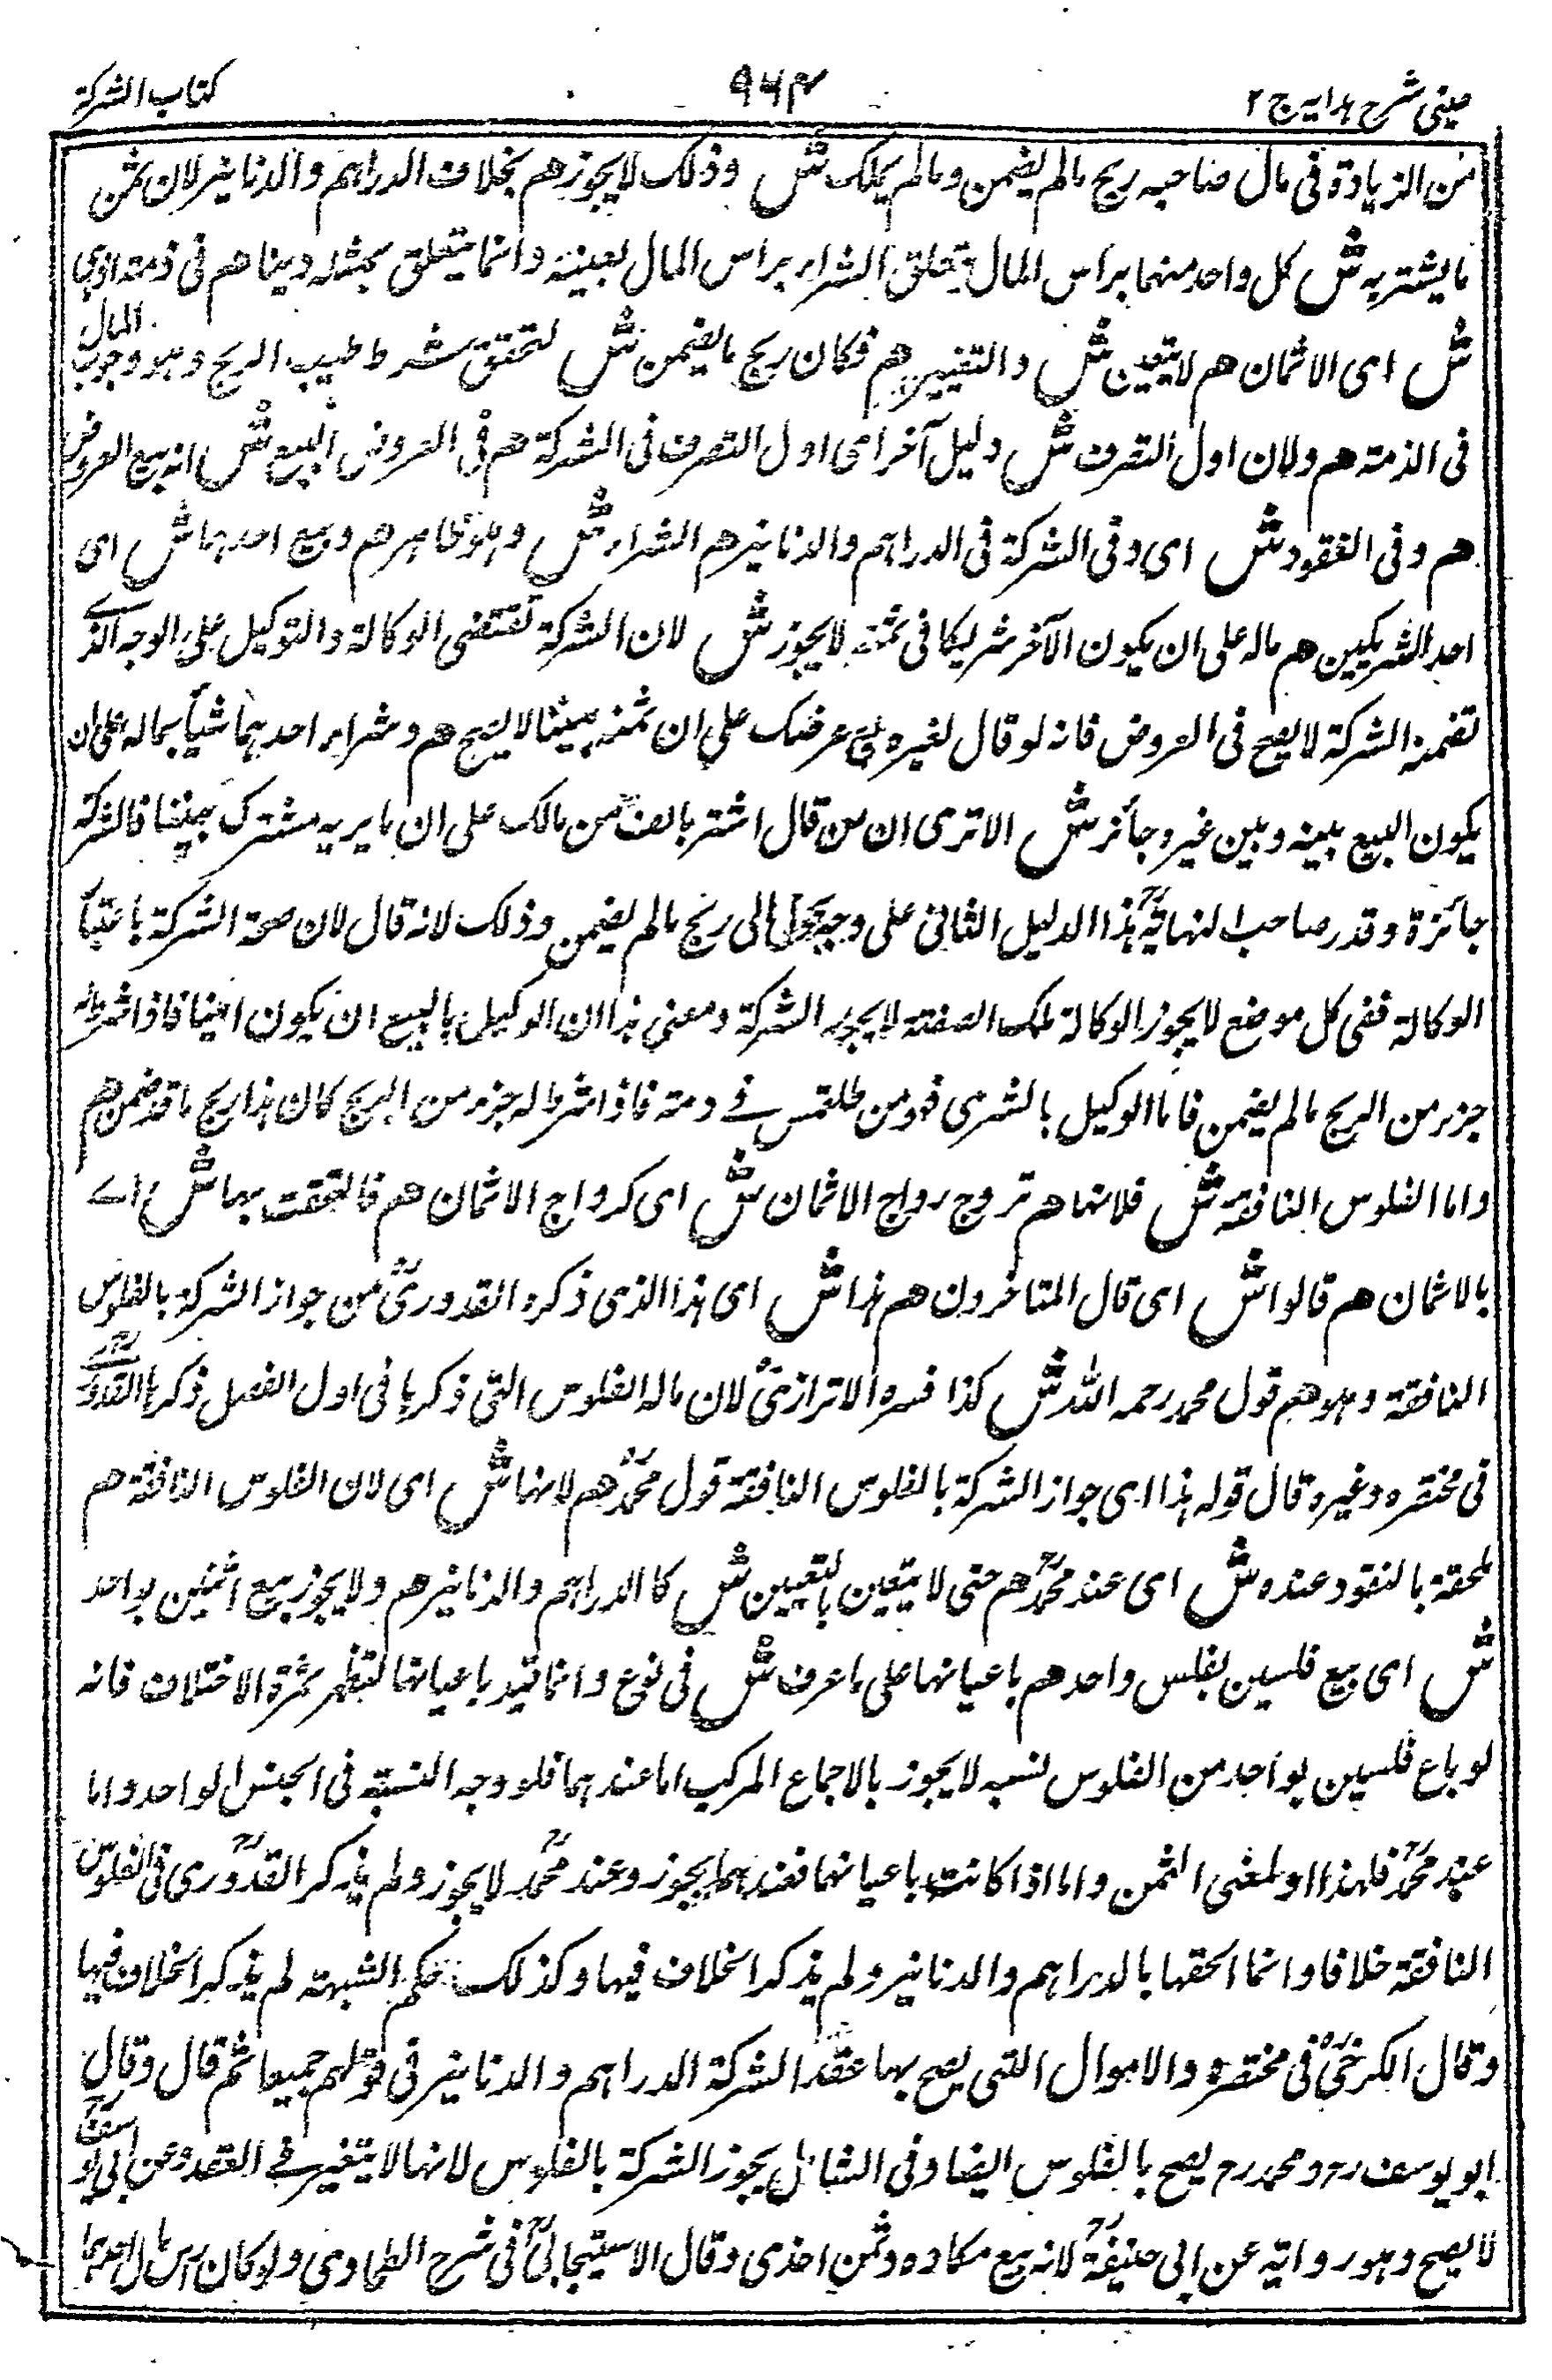 عينى شرح هدايه ج ٢
٩٦٣
كتاب الشركة
من الزيادة فى مال صاحبه ربح مالم يضمن ومالم يملك ش وذلك لا يجوز هم بخلاف الدراهم والدنانير لان ثمن
ما يشتريه ش كل واحد منهما براس المال يتعلق الشراء براس المال بعينه وانما يتعلق بمثله دينا هم فى ذمته اذ هى
ش اى الاثمان هم لا يتعين ش والتعيين هم فكان ربح ما يضمن ش لتحقق شرط طيب الربح وهو وجوب المال
فى الذمته هم ولان اول التصرف ش دليل آخر اى اول التصرف فى الشركة هم فى العروض البيع ش انه بيع العروض
هم وفى النقود ش اى وفى الشركة فى الدراهم والدنانير هم الشراء ش وهو ظاهر هم وبيع احدهما ش اى
احد الشريكين هم ماله على ان يكون الآخر شريكا فى ثمنه لا يجوز ش لان الشركة تقتضى الوكالة والتوكيل على الوجه الذے
تضمنه الشركة لا يصح فى العروض فانه لو قال لغيره بع عرضك على ان ثمنه بيننا لا يصح هم وشراء احدهما شيأ بماله على ان
يكون البيع بينه وبين غيره جائز ش الا ترى ان من قال اشتر بالف من مالك على ان ما يريه مشترك بيننا فالشركة
جائزة وقدر صاحب النهايةؒ هذا الدليل الثانى على وجه الى ربح مالم يضمن وذلك لانه قال لان صحة الشركة باعتبا
الوكالة ففى كل موضع لا يجوز الوكالة بتلك الصفته لا يجوز الشركة ومعنى هذا ان الوكيل بالبيع ان يكون امينا فاذا شرط له
جزء من الربح مالم يضمن فاما الوكيل بالشرى فهو من فے دمته فاذا شرط له جزء من الربح كان هذا ربح ما قد ضمن هم
واما الفلوس النافقة ش فلانها هم تروج رواج الاثمان ش اى كرواج الاثمان هم فالتحقت بها ش اے
بالاثمان هم قالوا ش اى قال المتاخرون هم هذا ش اى هذا الذى ذكره القدورىؒ من جواز الشركة بالفلوس
النافقة وهو هم قول محمد رحمه الله ش كذا فسره الاترازىؒ لان ماله الفلوس التى ذكرها فى اول الفصل ذكرها القدورے
فى مختصره وغيره قال قوله هذا اى جواز الشركة بالفلوس النافقة قول محمدؒ هم لانها ش اى لان الفلوس النافقة هم
ملحقة بالنقود عنده ش اى عند محمدؒ هم حتى لا يتعين بالتعيين ش كالدراهم والدنانير هم ولا يجوز بيع اثنين بواحد
ش اى بيع فلسين بفلس واحد هم باعيانها على ما عرف ش فى نوع وانما قيد باعيانها لتظهر ثمرة الاختلاف فانه
لو باع فلسين بواحد من الفلوس نسيه لا يجوز بالاجماع المركب اما عندهما فلو وجه النسبته فى الجنس الواحد واما
عند محمدؒ فلهذا او لمعنى الثمن واما اذا كانت باعيانها فعندهما يجوز وعند محمدؒ لا يجوز ولم يذكر القدورىؒ فى الفلوس
النافقة خلافا وانما الحقها بالدراهم والدنانير ولم يذكر الخلاف فيها وكذلك حكم الشبهته لم يذكر الخلاف فيها
وقال الكرخىؒ فى مختصره والاموال التى يصح بها عقد الشركة الدراهم والدنانير فى قولهم جميعا ثم قال وقال
ابو يوسف رح ومحمد رح يصح بالفلوس ايضا وفى الشامل يجوز الشركة بالفلوس لانها لا يتغير فے العقد وعن ابى يوسفؒ
لا يصح وهو رواية عن ابى حنيفةؒ لانه بيع وثمن اخذى وقال الاسبيجابىؒ فى شرح الطحاوى ولو كان راس مال احدهما